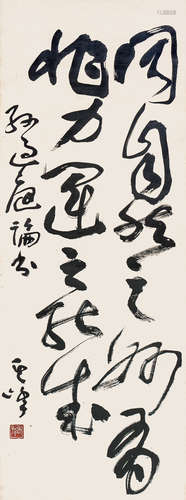 同自然之妙有
非力运之能成
孙过庭论书
其峰